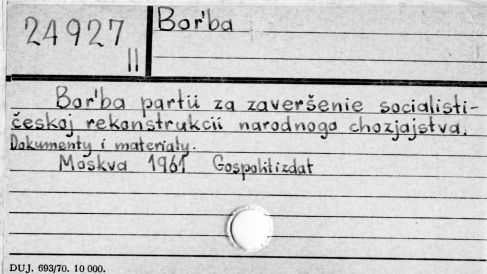 24927
II
Bor'ba
Bor'ba partii za zaveršenie socialisti-
českoj rekonstrukcii narodnogo chozjajstva.
Dokumenty i materialy.
Moskva 1961 Gospolitizdat
DUJ. 693/70. 10 000.